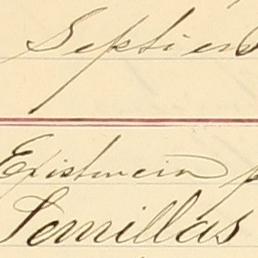 Septiem
Existencia p
Semillas